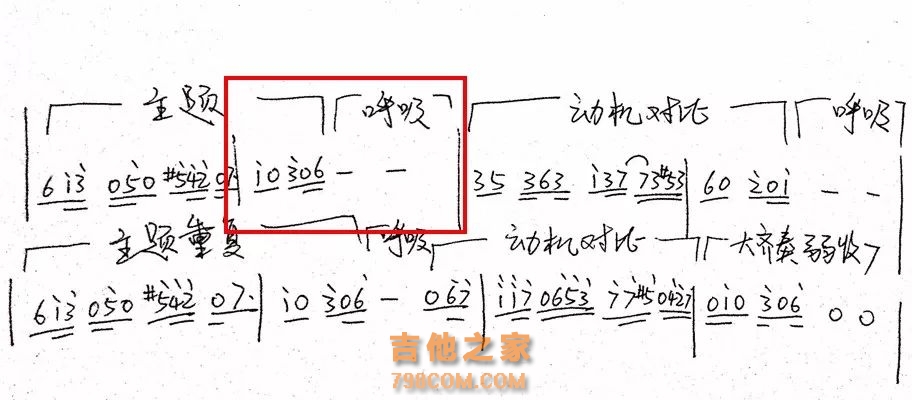 主题 呼吸 动机对比 呼吸
6i̇3̇ 05̇0 #5̇4̇2̇ 07 | i̇0 3̇06 - - | 35 363 i̇37 73#53 | 60 2̇0i̇ - -
主题重复 呼吸 动机对比 大齐奏弱收
6i̇3̇ 05̇0 #5̇4̇2̇ 07· | i̇0 3̇06̇ - 06̇7̇ | i̇i̇7̇ 06̇5̇3̇ 7̇7̇#5̇04̇2̇7 | 0i̇0 3̇06̇ 0 0
吉他之家
798COM.COM